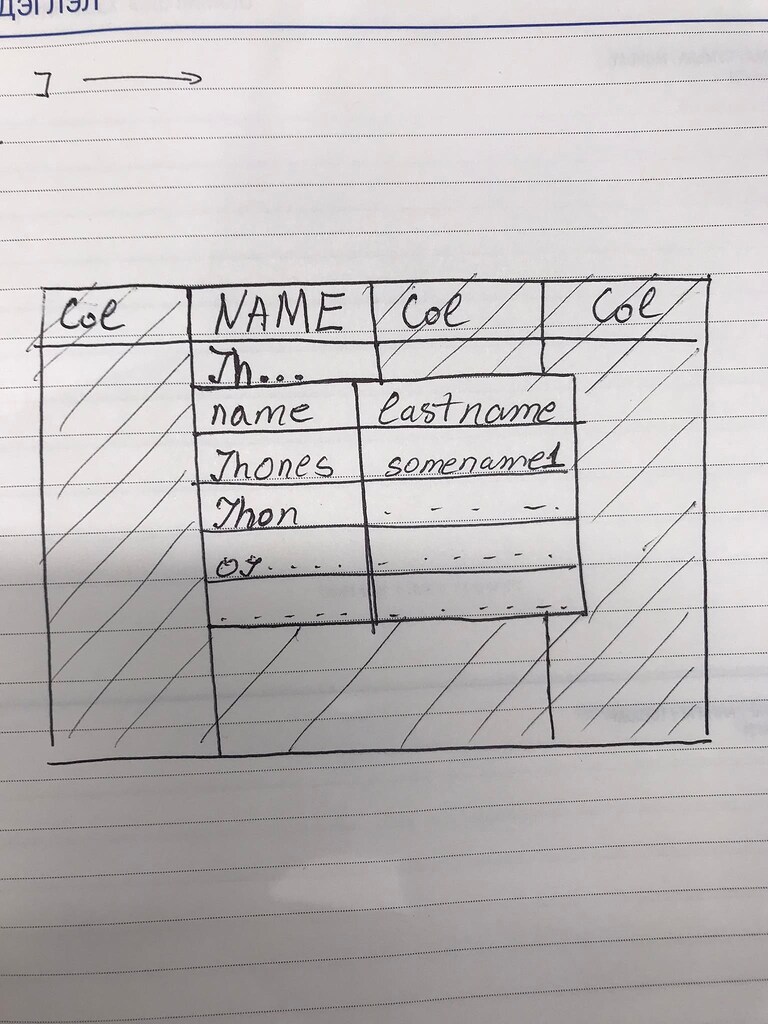 ДЭГЛЭЛ
J
Col NAME Col Col
Jh...
name lastname
Jhones somename1
Jhon - - - -.
- . - - - -.
. - - - - - - . - - -.